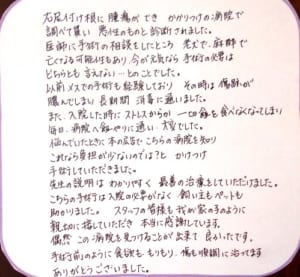 右足付け根に腫瘍ができ かかりつけの病院で
調べて貰い 悪性のものと診断されました。
医師に手術の相談をしたところ 老犬で、麻酔で
亡くなる可能性もあり、今が元気なら手術の必要は
どちらとも言えない…とのことでした。
以前メスでの手術も経験しており その時は傷跡が
膿んでしまい長期間 消毒に通いました。
また、入院した時にストレスからか 一切餌を食べなくなってしまい
毎日、病院へ餌やりに通い 大変でした。
悩んでいたときに 本の広告でこちらの病院を知り
これなら負担が少ないのでは?と かけつけ
手術していただきました。
先生の説明は わかりやすく 最善の治療をしていただけました。
こちらの手術は入院の必要がなく 飼い主もペットも
助かりました。 スタッフの皆様も我が家の子のように
親切に接していただき 本当に感謝しています。
偶然 この病院を見つけることが出来て 良かったです。
手術前のように食欲も もりもり、傷も順調に治ってます
ありがとうございました。